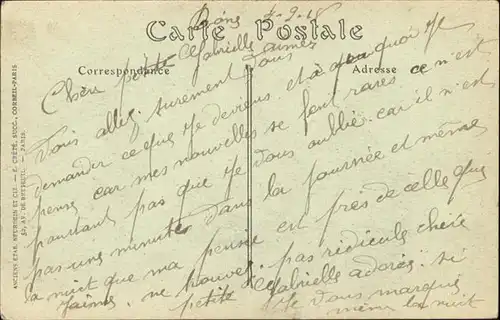 Carte Postale
Correspondance
Adresse
Chère petite Gabrielle aimée
Vous allez surement vous
demander ce que je deviens et à quoi je
pense car mes nouvelles se font rares ce n'est
pourtant pas que je vous oublie car il n'est
pas une minute dans la journée et même
la nuit que ma pensée est près de celle que
j'aime, ne trouvez pas ridicule chère
petite Gabrielle adorée si
je vous marque
même la nuit
ANCIENS ETAB. NEURDEIN ET CIE. — E. CRÉTÉ, SUCC. CORBEIL-PARIS
52, AV. DE BRETEUIL — PARIS